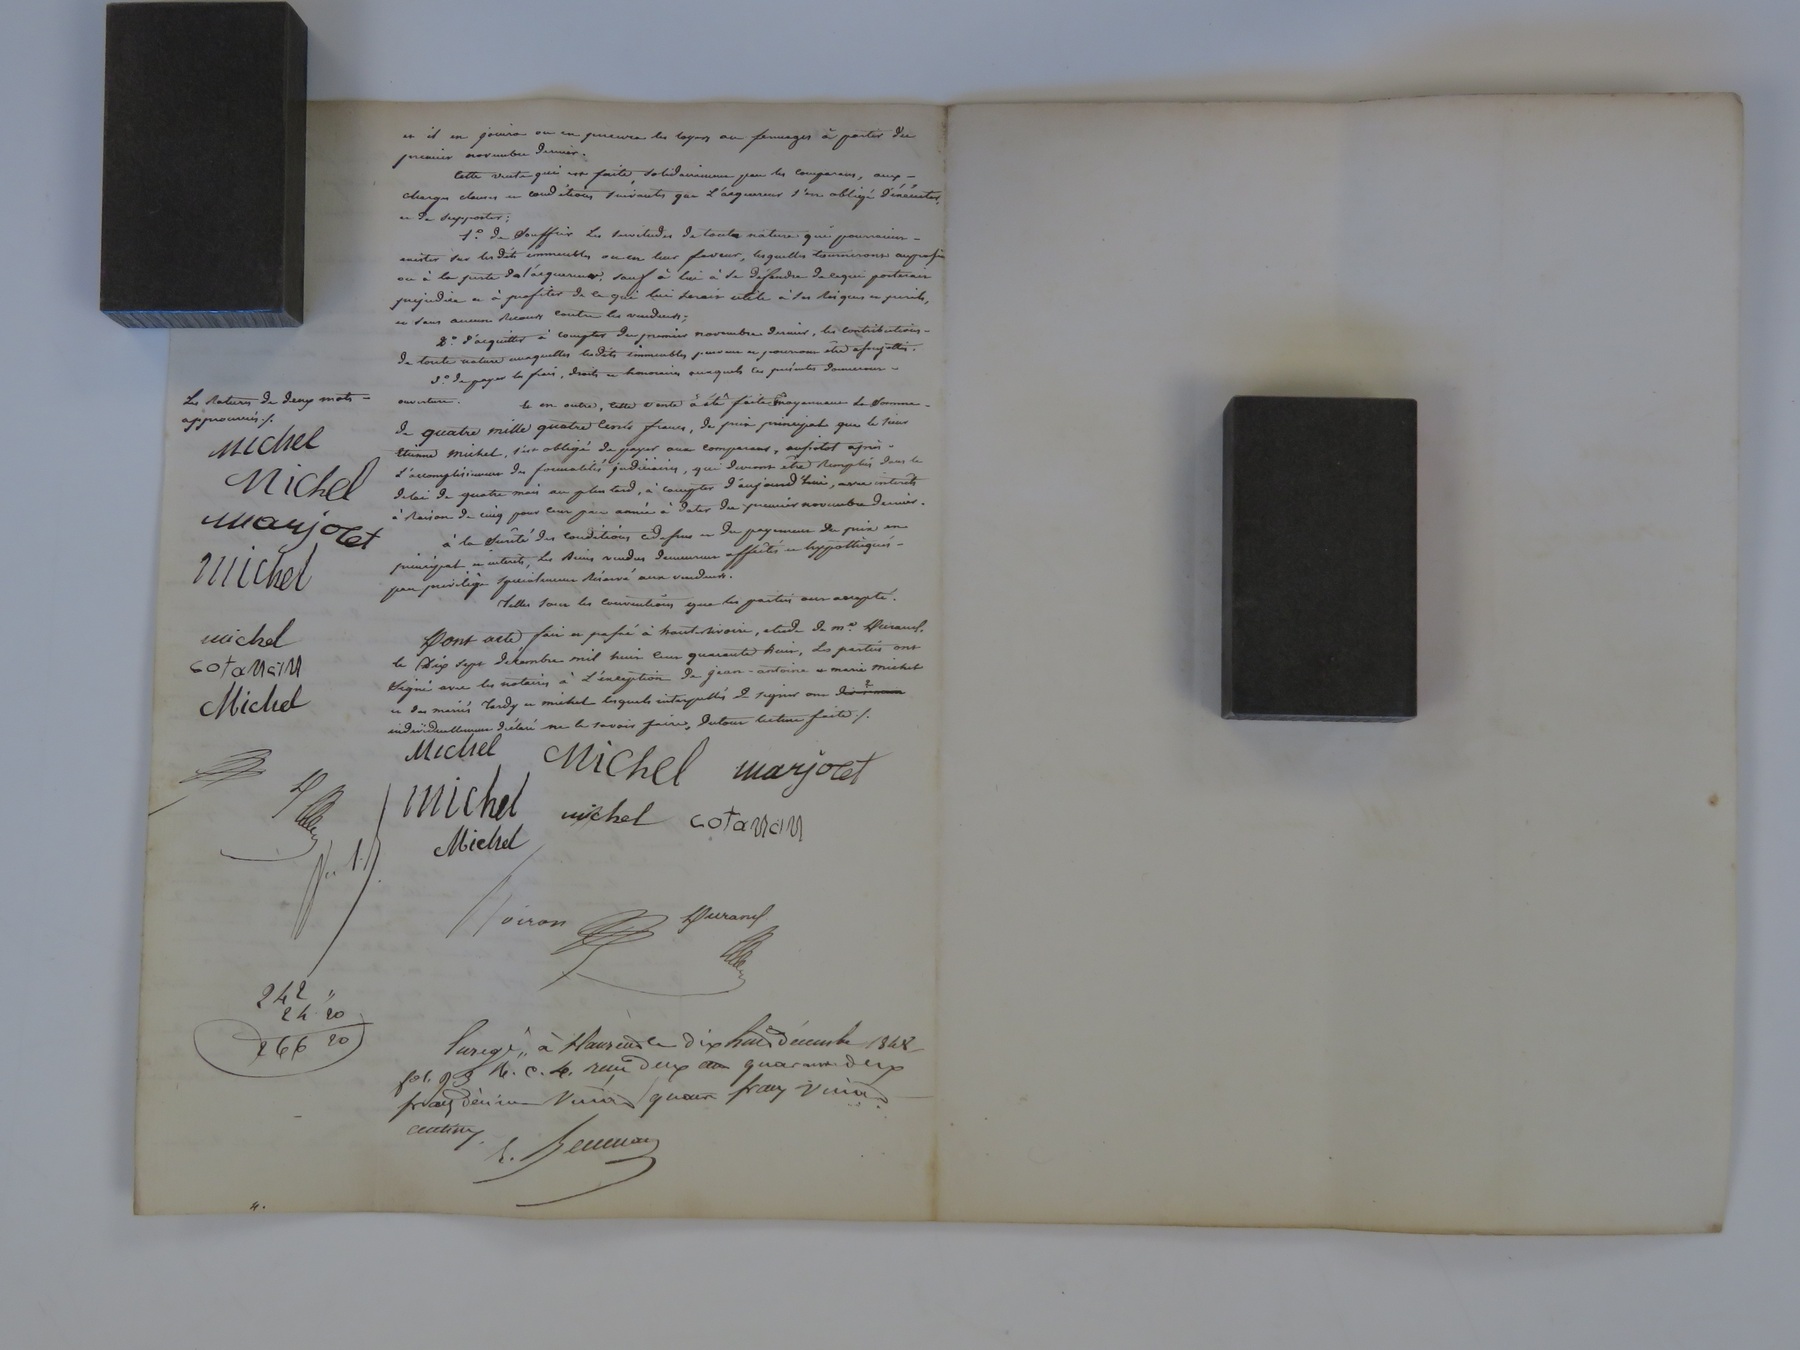 et il en jouira ou en percevra les loyers ou fermages à partir du
premier novembre dernier.
Cette vente qui est faite, solidairement par les comparans, aux
charges clauses et conditions suivantes que l'acquereur s'est obligé d'exécuter,
et de supporter;
1.º de Souffrir les servitudes de toute nature qui pourraient
exister sur lesdits immeubles ou en leur faveur, lesquelles tourneront au profit
ou à la perte de l'acquereur, sauf à lui à se défendre de ce qui porterait
prejudice et à profiter de ce qui lui serait utile à ses risques et perils,
et sans aucun recours contre les vendeurs;
2.º d'acquitter à compter du premier novembre dernier, les contributions
de toute nature auxquelles lesdits immeubles peuvent et pourront être assujettis.
3.º de payer les frais, droits et honoraires auxquels ces présentes donneront
ouverture. Et en outre, cette vente a été faite moyennant la Somme
de quatre mille quatre Cents francs, de prix principal que le Sieur
Etienne Michel, s'est obligé de payer aux comparans, aussitot après
l'accomplissement des formalités judiciaires, qui devront être remplies dans le
delai de quatre mois au plus tard, à compter d'aujourd'hui, avec intérêts
à Raison de cinq pour cent par année à dater du premier novembre dernier.
à la Sureté des conditions cidessus et du payement du prix en
principal et intérêts, les biens vendus demeurent affectés et hypothèqués
par privilège specialement Réservé aux vendeurs.
Telles sont les conventions que les parties ont accepté.
Dont acte, fait et passé à haut-rivoire, etude de mº. Durand,
le Dix sept décembre mil huit cent quarante huit, les parties ont
Signé avec les notaires à l'exception de jean-antoine et marie michel
et des mariés Tardy et michel lesquels interpellés de signer ont
individuellement déclaré ne le savoir faire, dutout lecture faite ./.
Les Ratures de deux mots
approuvées ./.
Michel
Michel
marjolet
michel
michel
cotansin
Michel
Michel Michel marjolet
michel michel cotansin
Michel
Voiron Durand
242 "
24 20
266 20
Enregé. à dix huit décembre 1848
fol. 93 R. C. 4. reçu deux cent quarante deux
francs décime Vingt quatre francs Vingt
centimes.